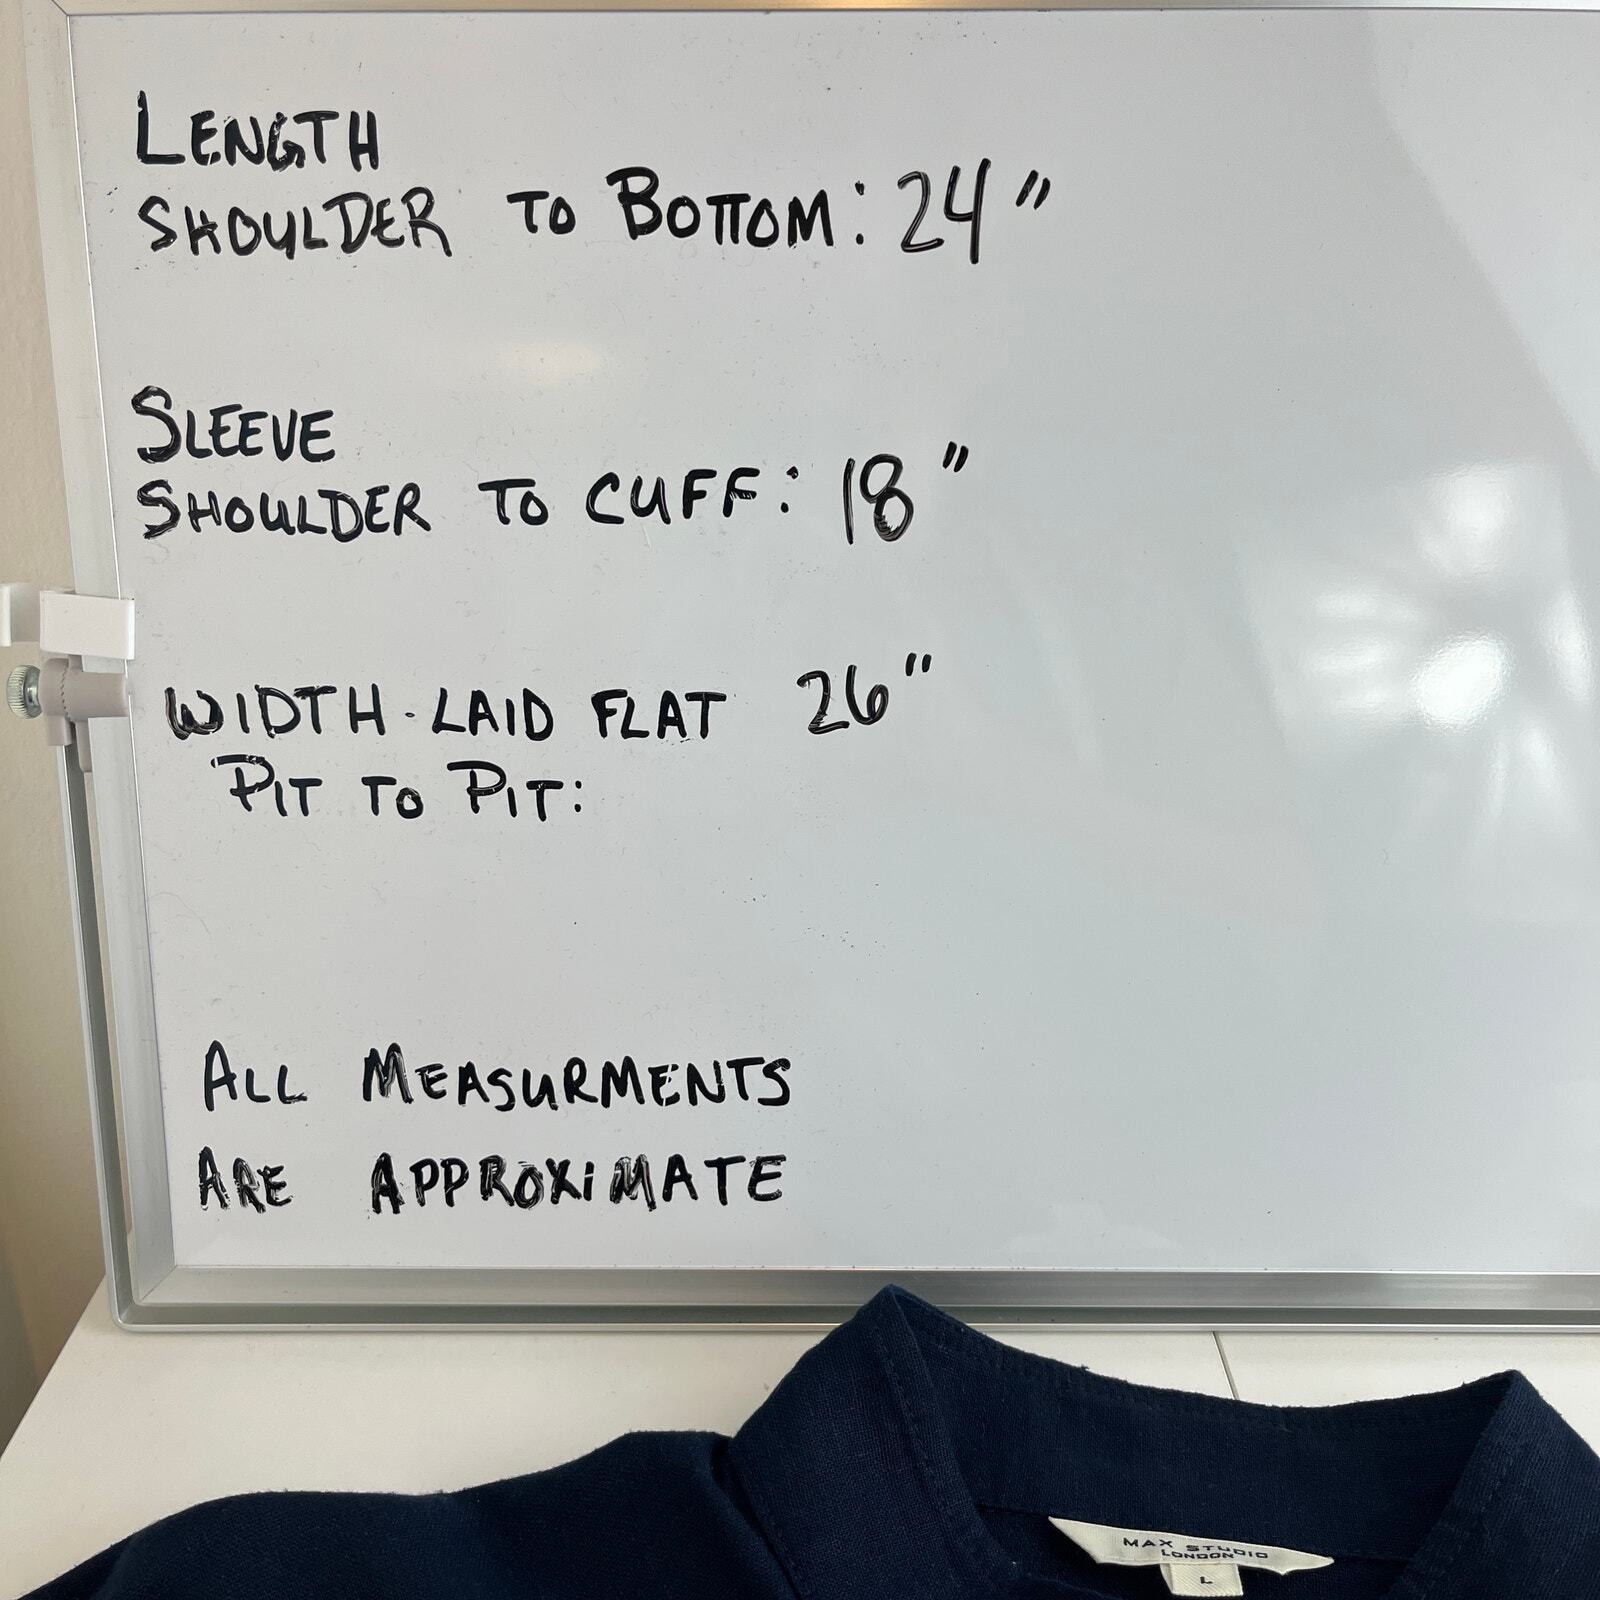 LENGTH
SHOULDER TO BOTTOM: 24"
SLEEVE
SHOULDER TO CUFF: 18"
WIDTH - LAID FLAT 26"
PIT TO PIT:
ALL MEASURMENTS
ARE APPROXIMATE
MAX STUDIO
LONDON
L